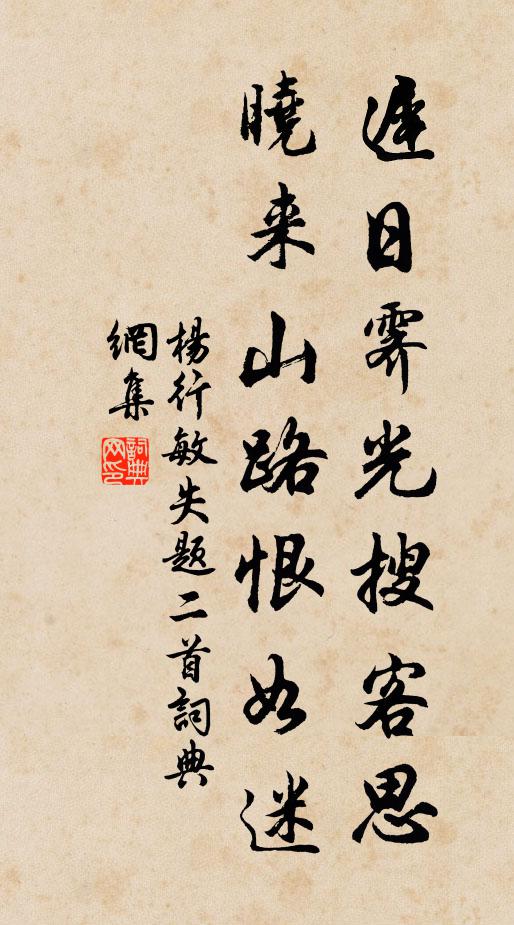 遲日霽光搜客思
曉来山路恨如迷
楊行敏失题二首詞典
網集
詞典
网印